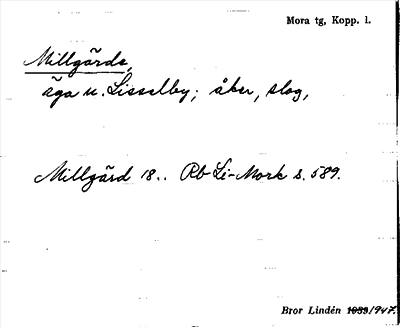 Mora tg, Kopp. l.
Millgårde,
äga u. Lisselby; åker, slog,
Millgård 18.. Rb Li-Mork s. 589.
Bror Lindén 1939/947.